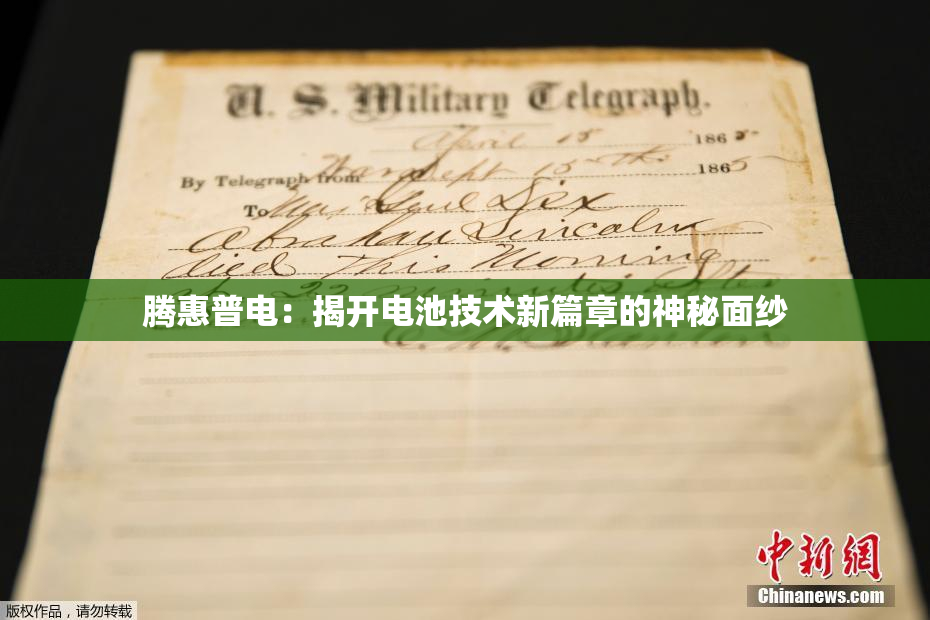 U. S. Military Telegraph.
April 15 1865
By Telegraph from War Dept 15th 1865
To Maj Genl Dix
Abraham Lincoln
died This Morning
at 22 minutes after
腾惠普电：揭开电池技术新篇章的神秘面纱
中新网
Chinanews.com
版权作品，请勿转载